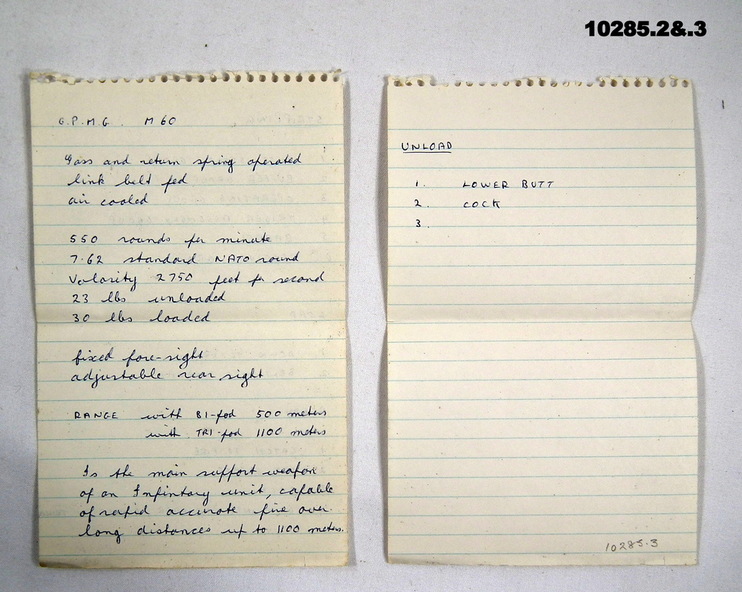 10285.2&.3
G.P.M.G. M60
Gass and return spring operated
link belt fed
air cooled
550 rounds per minute
7.62 standard NATO round
Volosity 2750 feet pr second
23 lbs unloaded
30 lbs loaded
fixed fore-sight
adjustable rear sight
RANGE with BI-pod 500 meters
with TRI-pod 1100 meters
Is the main support weapon
of an Infintary unit, capable
of rapid accurate fire over
long distances up to 1100 meters.
UNLOAD
1. LOWER BUTT
2. COCK
3.
10285.3